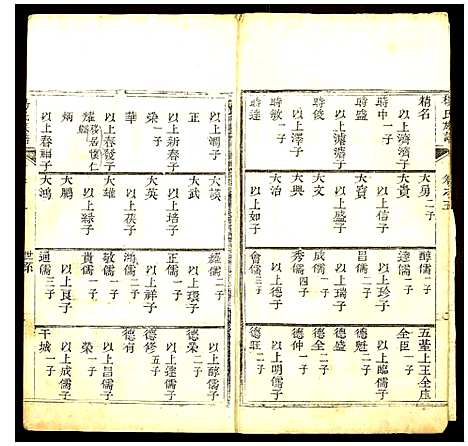 楊氏族譜
卷之五
精名
以上濟濟子
時中一子
時盛
以上濬濟子
時俊
以上澤子
時敏一子
時達
大勇二子
大貴
以上信子
大寶
以上盛子
大文
大興
大治
以上如子
醇儒二子
達儒一子
以上珍子
昌儒二子
以上瑞子
成儒一子
秀儒四子
以上德子
會儒三子
五堇上王全庄
全臣一子
以上臨儒子
德魁二子
德盛
德全二子
德仲一子
以上明儒子
德旺二子
以上澗子
正一子
以上新春子
榮一子
華
以上春發子
耀
炳
以上春福子
大英
大武
以上培子
以上茯子
大雄
以上緑子
大鵬
大鴻
以上環子
正儒一子
以上祥子
鴻儒二子
敏儒一子
貴儒一子
以上良子
通儒三子
以上醇儒子
德榮二子
以上達儒子
德修五子
德有
以上昌儒子
榮一子
以上成儒子
干城一子
世系